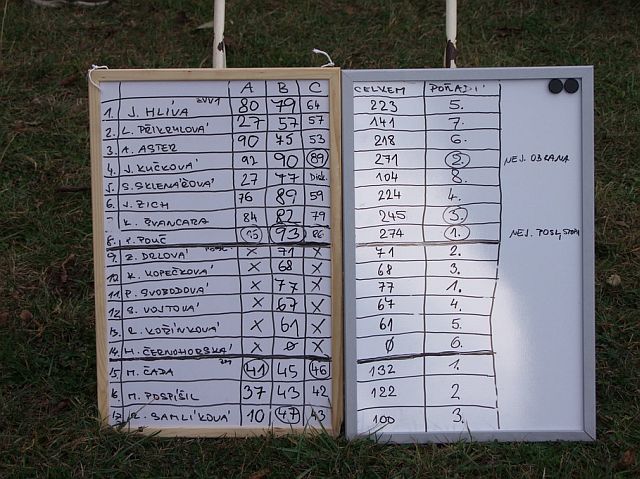 A B C CELKEM POŘADÍ
1. J. HLÍVA 80 79 64 223 5.
2. L. PŘIKRYLOVÁ 27 57 57 141 7.
3. A. ASTER 90 75 53 218 6.
4. J. KUČKOVÁ 92 90 89 271 2. NEJ. OBRANA
5. S. SKLENÁŘOVÁ 27 77 Disk. 104 8.
6. J. ZICH 76 89 59 224 4.
7. K. ŠVANCARA 84 82 79 245 3.
8. P. POUČ 93 86 274 1. NEJ. POSLUŠ
9. Z. DRLOVÁ X 71 X 71 2.
10. K. KOPEČKOVÁ X 68 X 68 3.
11. P. SVOBODOVÁ X 77 X 77 1.
12. S. VOJTOVÁ X 67 X 67 4.
13. R. KOŘÍNKOVÁ X 61 X 61 5.
14. H. ČERNOHORSKÁ X Ø X Ø 6.
15. M. ČADA 41 45 46 132 1.
16. M. POSPÍŠIL 37 43 42 122 2
17. R. SAMLÍKOVÁ 10 47 43 100 3.